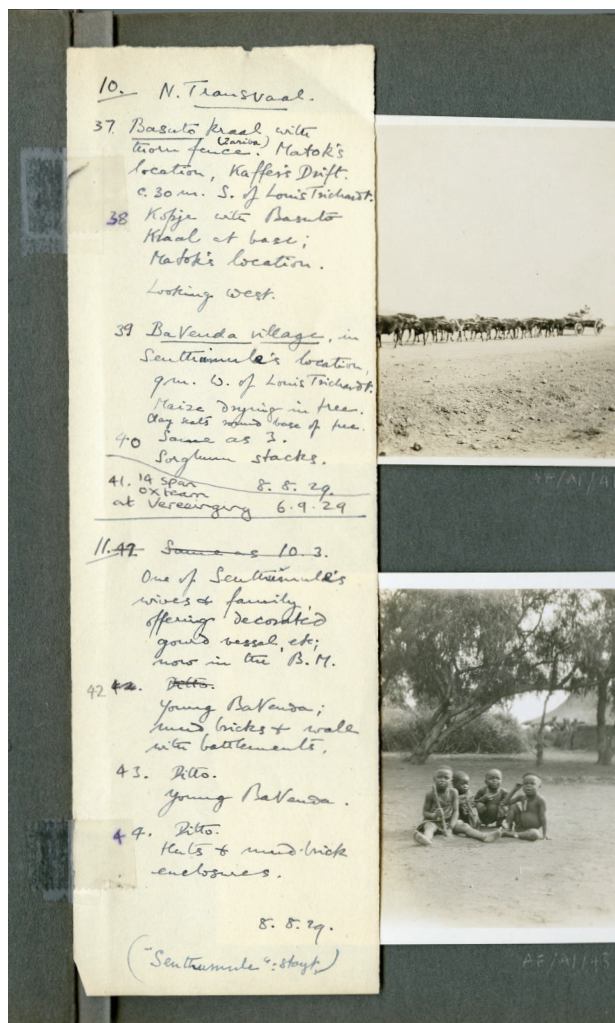 10. N. Transvaal.
37. Basuto kraal with
(Zariba)
thorn fence. Matok's
location, Kaffer's Drift.
c. 30 m. S. of Louis Trichardt.
38 Kopje with Basuto
Kraal at base;
Matok's location.
Looking west.
39 BaVenda village, in
Senthumule's location,
9 m. W. of Louis Trichardt.
Maize drying in tree.
Clay seats round base of tree.
40 Same as 3.
Sorghum stacks.
8.8.29.
41. 14 span
ox team
at Vereeniging 6.9.29
11. 41 Same as 10.3.
One of Senthumule's
wives & family,
offering decorated
gourd vessel, etc;
now in the B.M.
42 42. Ditto.
Young BaVenda;
mud bricks & wall
with battlements.
43. Ditto.
Young BaVenda.
44. Ditto.
Huts & mud-brick
enclosures.
8.8.29.
("Senthumule": Stayt)
AF/A1/41
AF/A1/43